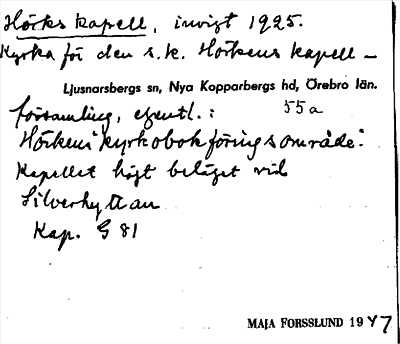 Hörks kapell, invigt 1925.
Kyrka för den s.k. Hörkens kapell –
Ljusnarsbergs sn, Nya Kopparbergs hd, Örebro län.
församling, egentl.: 55a
Hörkens "kyrkobokföringsområde".
Kapellet högt beläget vid
Silverhyttan
Kap. G 81
MAJA FORSSLUND 1947